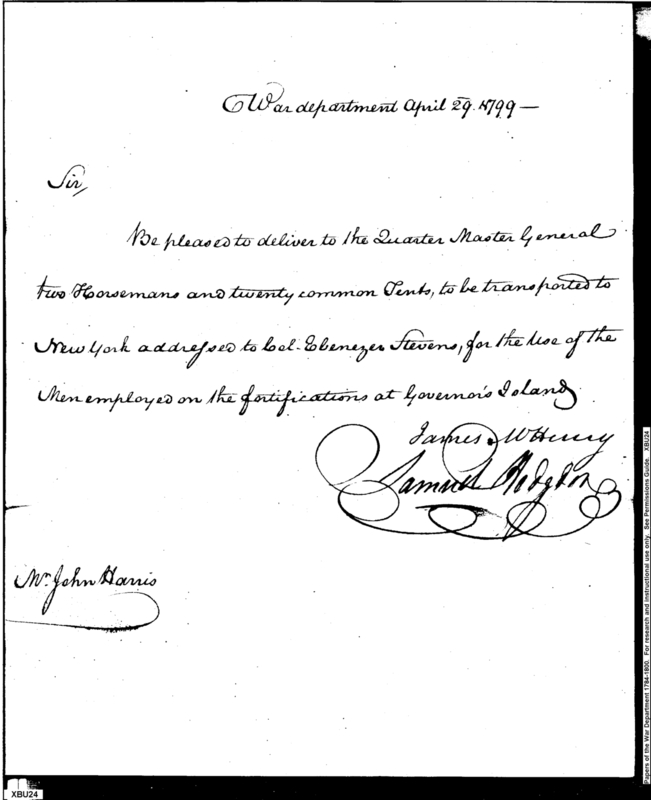 War department April 29. 1799 —
Sir,
Be pleased to deliver to the Quarter Master General
two Horsemans and twenty common Tents, to be transported to
New York addressed to Col. Ebenezer Stevens, for the Use of the
Men employed on the fortifications at Governor's Island
James McHenry
Samuel Hodgdon
Mr. John Harris
Papers of the War Department 1784-1800. For research and instructional use only. See Permissions Guide. XBU24
XBU24